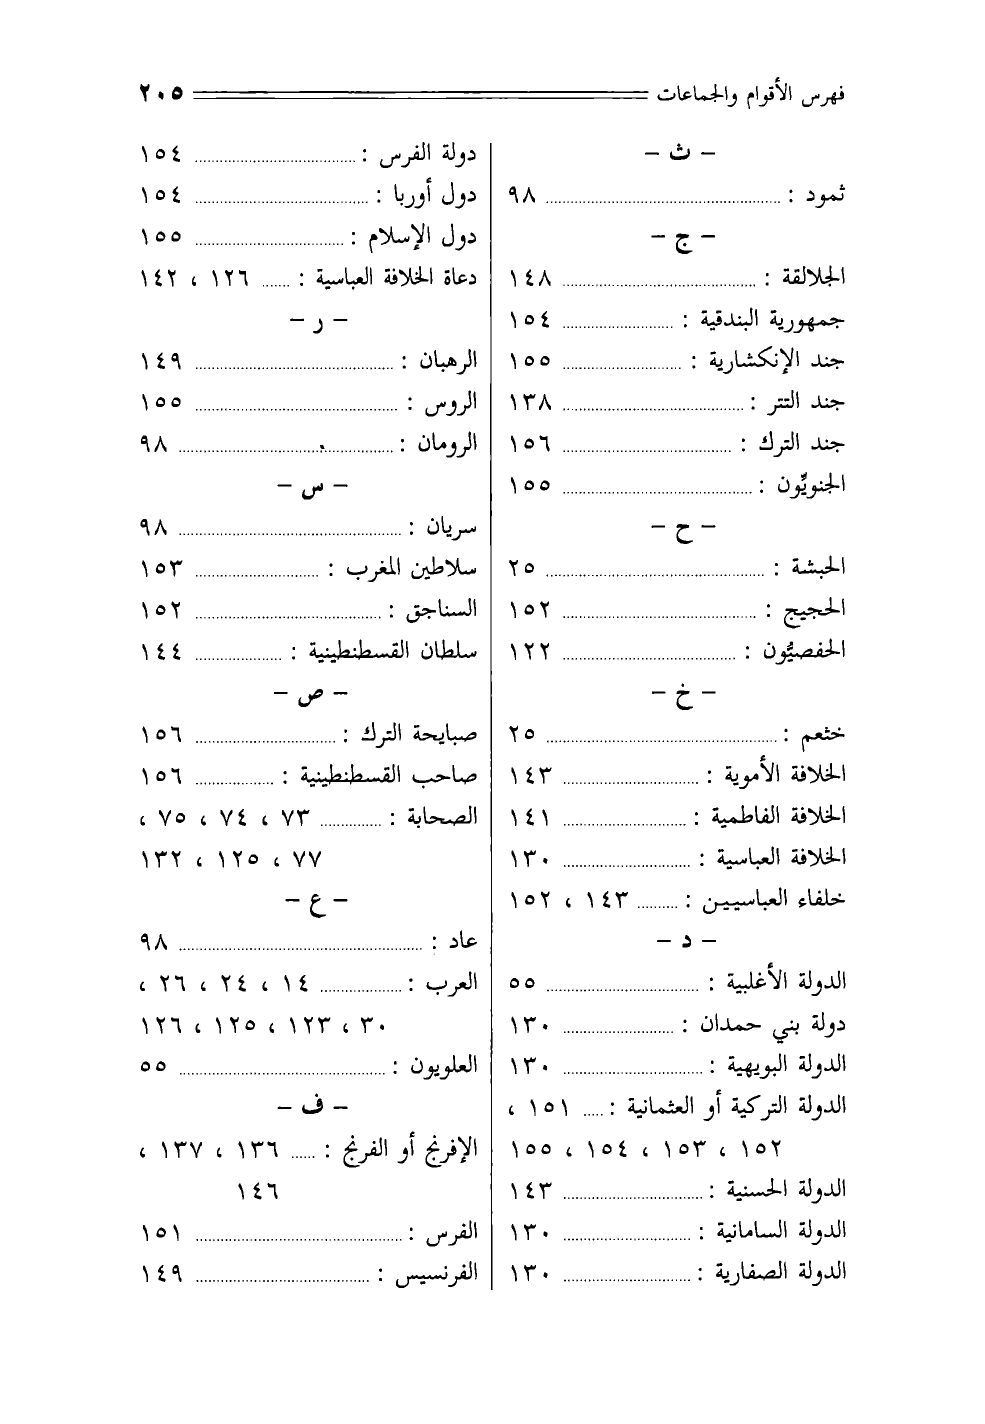 فهرس الأقوام والجماعات ٢٠٥
- ث -
ثمود : ٩٨
- ج -
الجلالقة : ١٤٨
جمهورية البندقية : ١٥٤
جند الإنكشارية : ١٥٥
جند التتر : ١٣٨
جند الترك : ١٥٦
الجنويِّون : ١٥٥
- ح -
الحبشة : ٢٥
الحجيج : ١٥٢
الحفصيُّون : ١٢٢
- خ -
خثعم : ٢٥
الخلافة الأموية : ١٤٣
الخلافة الفاطمية : ١٤١
الخلافة العباسية : ١٣٠
خلفاء العباسيين : ١٤٣ ، ١٥٢
- د -
الدولة الأغلبية : ٥٥
دولة بني حمدان : ١٣٠
الدولة البويهية : ١٣٠
الدولة التركية أو العثمانية : ١٥١ ،
١٥٢ ، ١٥٣ ، ١٥٤ ، ١٥٥
الدولة الحسنية : ١٤٣
الدولة السامانية : ١٣٠
الدولة الصفارية : ١٣٠
دولة الفرس : ١٥٤
دول أوربا : ١٥٤
دول الإسلام : ١٥٥
دعاة الخلافة العباسية : ١٢٦ ، ١٤٢
- ر -
الرهبان : ١٤٩
الروس : ١٥٥
الرومان : ٩٨
- س -
سريان : ٩٨
سلاطين المغرب : ١٥٣
السناجق : ١٥٢
سلطان القسطنطينية : ١٤٤
- ص -
صبايحة الترك : ١٥٦
صاحب القسطنطينية : ١٥٦
الصحابة : ٧٣ ، ٧٤ ، ٧٥ ،
٧٧ ، ١٢٥ ، ١٣٢
- ع -
عاد : ٩٨
العرب : ١٤ ، ٢٤ ، ٢٦ ،
٣٠ ، ١٢٣ ، ١٢٥ ، ١٢٦
العلويون : ٥٥
- ف -
الإفرنج أو الفرنج : ١٣٦ ، ١٣٧ ،
١٤٦
الفرس : ١٥١
الفرنسيس : ١٤٩